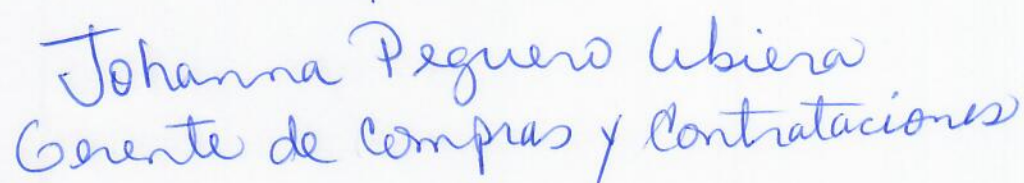 Johanna Peguero Ubiera
Gerente de Compras y Contrataciones